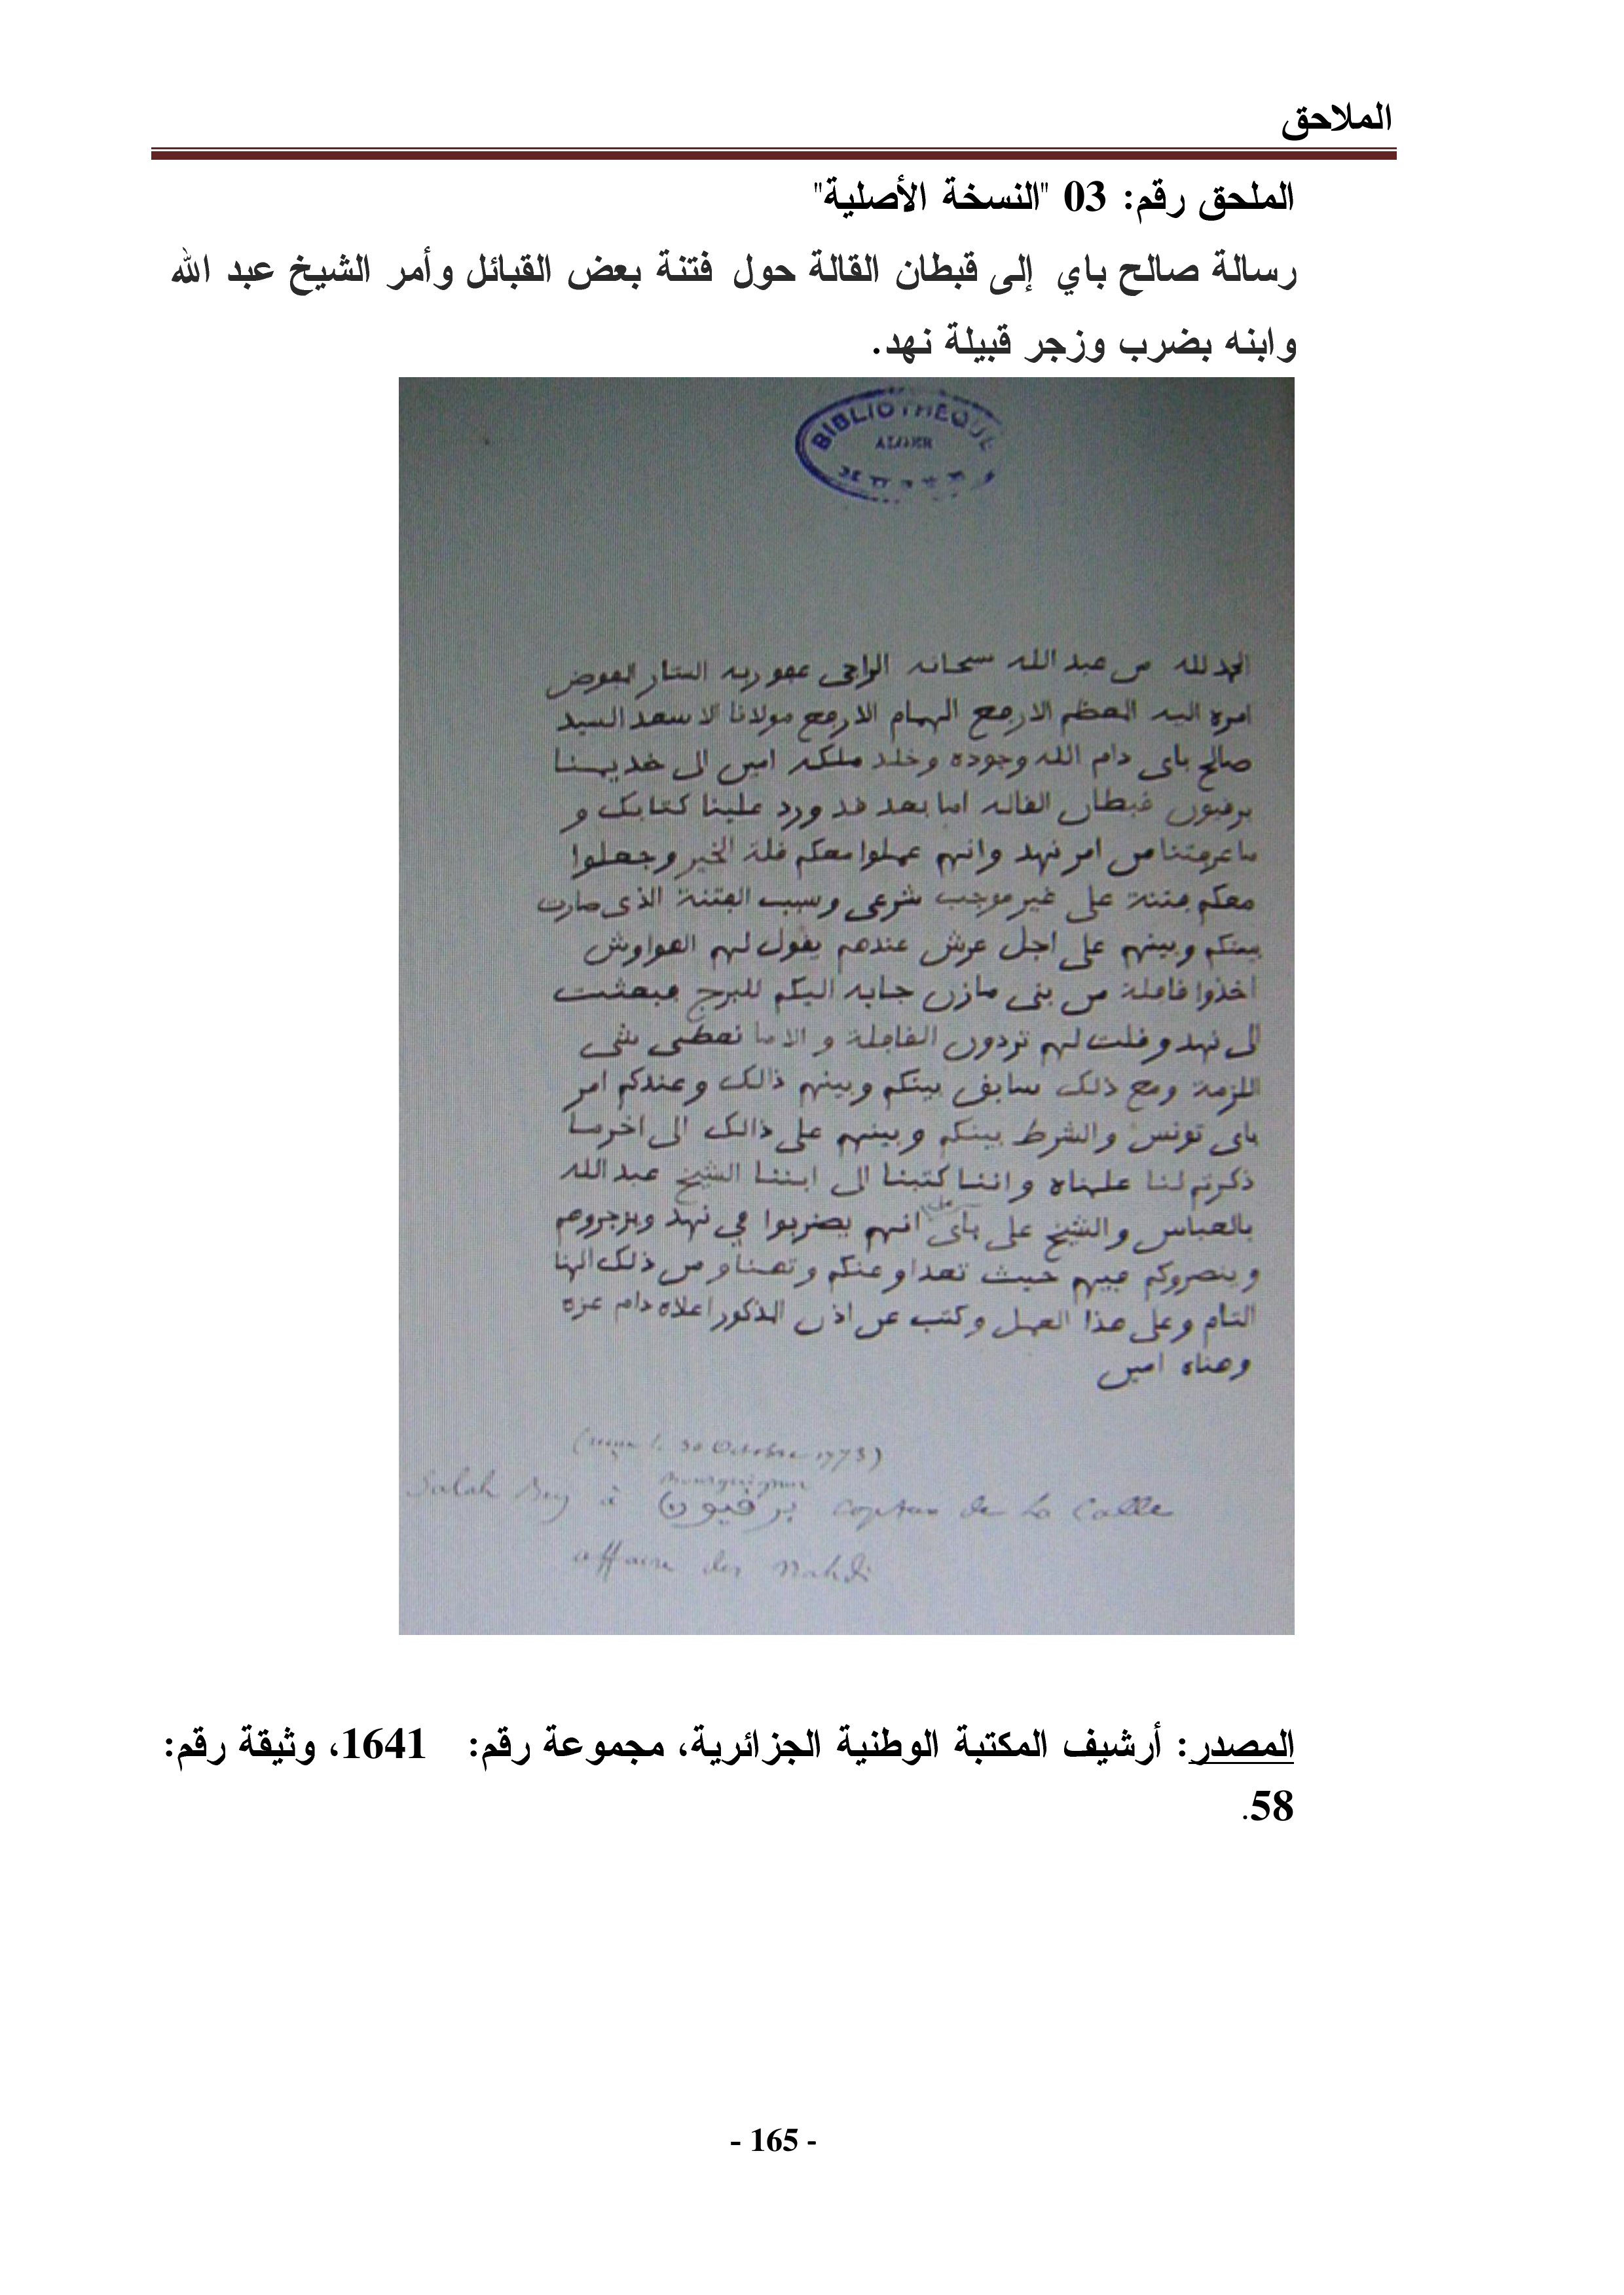 الملاحق
الملحق رقم: 03 "النسخة الأصلية"
رسالة صالح باي إلى قبطان القالة حول فتنة بعض القبائل وأمر الشيخ عبد الله
وابنه بضرب وزجر قبيلة نهد.
BIBLIOTHEQUE
ALGER
الحمد لله من عبد الله سبحانه الراجى عفو ربه الستار المفوض
امره اليه المعظم الارفع الهمام الانفع مولانا الاسعد السيد
صالح باى دام الله وجوده وخلد ملكه امين الى خديمنا
برقيون قبطان القاله اما بعد قد ورد علينا كتابك و
ما عرفتنا من امر نهد وانهم عملوا معكم قلة الخير وجعلوا
معكم فتنة على غير موجب شرعى وسبب الفتنة الذى صارت
بينكم وبينهم على اجل عرش عندهم يقول لهم العواوش
اخذوا قافلة من بنى مازن جايه اليكم للبرج فبعثت
الى نهد وقلت لهم تردون القافلة والا ما نعطى شى
اللزمة ومع ذلك سابق بينكم وبينهم ذالك وعندكم امر
باى تونس والشرط بينكم وبينهم على ذالك الى اخر ما
ذكرتم لنا علمناه واننا كتبنا الى ابننا الشيخ عبد الله
بالعباس والشيخ على باى انهم يضربوا في نهد ويزجروهم
وينصروكم فيهم حيث تعداو عنكم وتهناو من ذلك الهنا
التام وعلى هذا العمل وكتب عن اذن المذكور اعلاه دام عزه
وهناه امين
(reçu le 30 Octobre 1773)
Bourguignon
Salah Bey à برقيون Captan de la Calle
affaire des Nahdi
المصدر: أرشيف المكتبة الوطنية الجزائرية، مجموعة رقم: 1641، وثيقة رقم:
58.
- 165 -